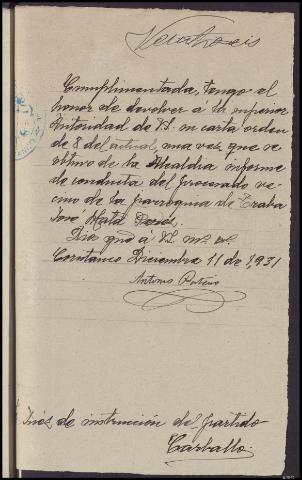 Cumplimentada, tengo el
honor de devolver á la superior
Autoridad de VS. su carta orden
de 8 del actual, una vez que se
obtuvo de la Alcaldia informe
de conducta del procesado ve-
cino de la parroquia de Traba
José Mata
Dios guê á VS. m. a.
Coristanco Diciembre 11 de 1,931
Antonio Patiño
Juéz de instrucción del partido
Carballo.